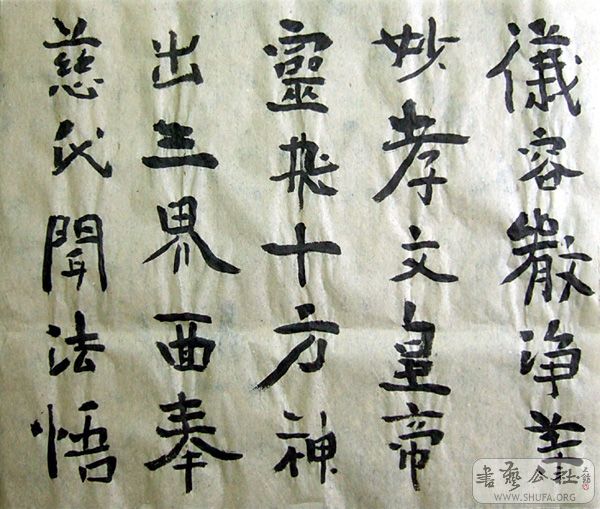 儀容嚴净
妙孝文皇帝
靈飛十方神
出三界面奉
慈氏聞法悟
書藝公社
WWW.SHUFA.ORG